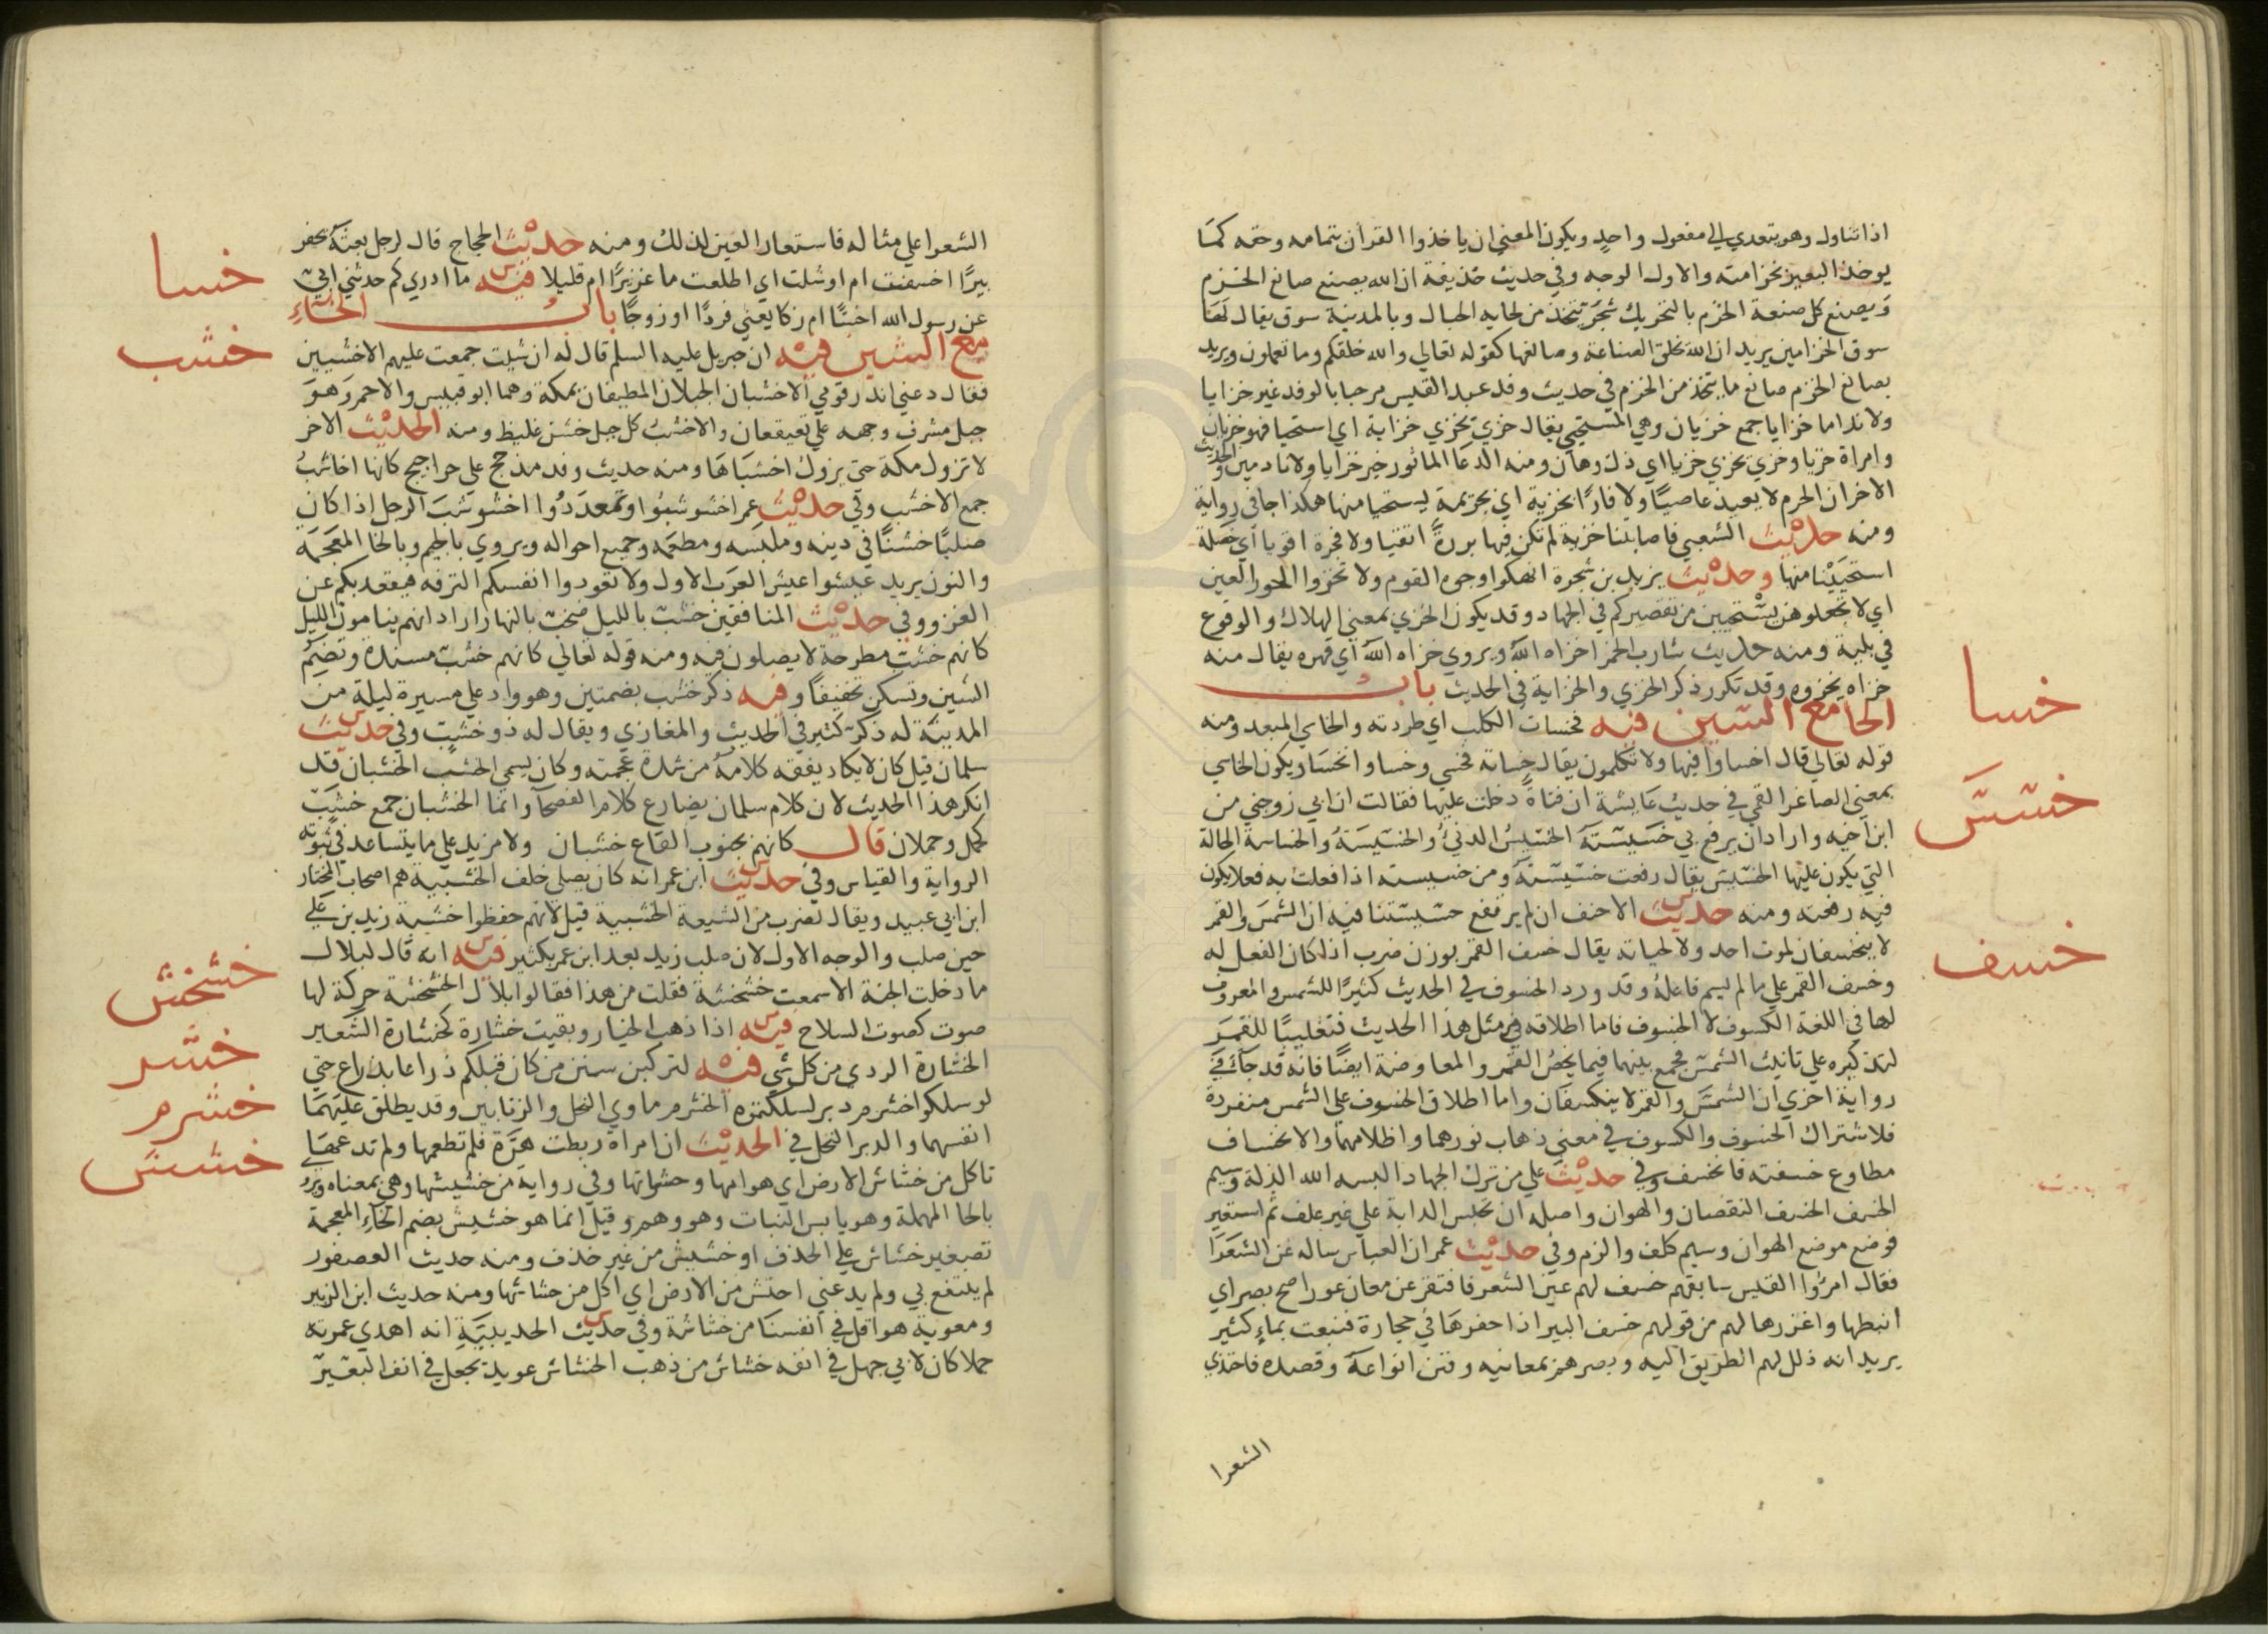 اذا تناول وهو يتعدي الي مفعول واحد ويكون المعني ان ياخذوا القرآن بتمامه وحقه كما
يوخذ البعير بخزامته والاول الوجه وفي حديث حذيفة ان الله يصنع صانع الخزم
ويصنع كل صنعة الخزم بالتحريك شجر يتخذ من لحايه الحبال وبالمدينة سوق يقال لها
سوق الخزامين يريد ان الله يخلق الصناعة وصانعها كقوله تعالي والله خلقكم وما تعملون ويريد
بصانع الخزم صانع ما يتخذ من الخزم في حديث وفد عبد القيس مرحبا بالوفد غير خزايا
ولا نداما خزايا جمع خزيان وهي المستحيي يقال خزي يخزي خزاية اي استحيا فهو خزيان
وامراة خزيا وخزي يخزي خزيا اي ذل وهان ومنه الدعا الماثور غير خزايا ولا نادمين والحديث
الاخر ان الحرم لا يعيذ عاصيًا ولا فارًا بخزية اي بجريمة يستحيا منها هكذا جا في رواية
ومنه حديث الشعبي فاصابتنا خزية لم نكن فيها بررة اتقيا ولا فجرة اقويا اي خصلة
استحيينا منها وحديث يزيد بن شجرة انهكوا وجوه القوم ولا تخزوا الحور العين
اي لا تجعلوهن يستحيين من تقصيركم في الجهاد وقد يكون الخزي بمعني الهلاك والوقوع
في بلية ومنه حديث شارب الخمر اخزاه الله ويروي خزاه الله اي قهره يقال منه
خزاه يخزوه وقد تكرر ذكر الخزي والخزاية في الحديث باب
الخا مع السين فيه فخسات الكلب اي طردته والخاسي المبعد ومنه
خسا
قوله تعالي قال اخساوا فيها ولا تكلمون يقال خساته فخسي وخسا وانخسا ويكون الخاسي
بمعني الصاغر القمي في حديث عايشة ان فتاة دخلت عليها فقالت ان ابي زوجني من
خسس
ابن اخيه واراد ان يرفع بي خسيسته الخسيس الدني والخسيسة والخساسة الحالة
التي يكون عليها الخسيس يقال رفعت خسيسته ومن خسيسته اذا فعلت به فعلا يكون
فيه رفعته ومنه حديث الاحنف ان لم يرفع خسيستنا فيه ان الشمس والقمر
لا ينخسفان لموت احد ولا لحياته يقال خسف القمر بوزن ضرب اذا كان الفعل له
خسف
وخسف القمر علي ما لم يسم فاعله وقد ورد الخسوف في الحديث كثيرًا للشمس والمعروف
لها في اللغة الكسوف لا الخسوف فاما اطلاقه في مثل هذا الحديث فتغليبًا للقمر
لتذكيره علي تانيث الشمس فجمع بينهما فيما يخص القمر والمعاوضة ايضًا فانه قد جا في
رواية اخري ان الشمس والقمر لا ينكسفان واما اطلاق الخسوف علي الشمس منفردة
فلاشتراك الخسوف والكسوف في معني ذهاب نورهما واظلامهما والانخساف
مطاوع خسفته فانخسف وفي حديث علي من ترك الجهاد البسه الله الذلة وسيم
الخسف الخسف النقصان والهوان واصله ان تحبس الدابة علي غير علف ثم استعير
فوضع موضع الهوان وسيم كلف والزم وفي حديث عمر ان العباس ساله عن الشعرا
فقال امرؤا القيس سابقهم خسف لهم عين الشعر فافتقر عن معان عور اصح بصر اي
انبطها واغزرها لهم من قولهم خسف البير اذا حفرها في حجارة فنبعت بماء كثير
يريد انه ذلل لهم الطريق اليه وبصرهم بمعانيه وفنن انواعه وقصده فاحتذي
الشعرا
الشعرا علي مثاله فاستعار العين لذلك ومنه حديث الحجاج قال لرجل بعثه يحفر
بيرًا اخسفت ام اوشلت اي اطلعت ما غزيرًا ام قليلا فيه ما ادري كم حدثني ابي
خسا
عن رسول الله اخسًا ام زكا يعني فردًا او زوجًا باب الخاء
مع الشين فيه ان جبريل عليه السلم قال له ان شيت جمعت عليهم الاخشبين
خشب
فقال دعني انذر قومي الاخشبان الجبلان المطيفان بمكة وهما ابو قبيس والاحمر وهو
جبل مشرف وجهه علي قعيقعان والاخشب كل جبل خشن غليظ ومنه الحديث الاخر
لا تزول مكة حتي يزول اخشباها ومنه حديث وفد مذحج علي حراجيج كانها اخاشب
جمع الاخشب وفي حديث عمر اخشوشبوا وتمعددوا اخشوشب الرجل اذا كان
صلبًا خشنًا في دينه وملبسه ومطعمه وجميع احواله ويروي بالجيم وبالخا المعجمة
والنون يريد عيشوا عيش العرب الاول ولا تعودوا انفسكم الترفه فيقعد بكم عن
الغزو وفي حديث المنافقين خشب بالليل صخب بالنهار اراد انهم ينامون الليل
كانهم خشب مطرحة لا يصلون فيه ومنه قوله تعالي كانهم خشب مسندة وتضم
الشين وتسكن تخفيفًا وفيه ذكر خشب بضمتين وهو واد علي مسيرة ليلة من
المدينة له ذكر كثير في الحديث والمغازي ويقال له ذو خشب وفي حديث
سلمان قيل كان لا يكاد يفقه كلامه من شدة عجمته وكان يسمي الخشب الخشبان قد
انكر هذا الحديث لان كلام سلمان يضارع كلام الفصحا وانما الخشبان جمع خشب
كحمل وحملان قال كانهم بجنوب القاع خشبان ولا مزيد علي ما يتساعد في ثبوته
الرواية والقياس وفي حديث ابن عمر انه كان يصلي خلف الخشبية هم اصحاب المختار
ابن ابي عبيد ويقال لضرب من الشيعة الخشبية قيل لانهم حفظوا خشبة زيد بن علي
حين صلب والوجه الاول لان صلب زيد بعد ابن عمر بكثير فيه انه قال لبلال
خشخش
ما دخلت الجنة الا سمعت خشخشة فقلت من هذا فقالوا بلال الخشخشة حركة لها
صوت كصوت السلاح فيه اذا ذهب الخيار وبقيت خشارة كخشارة الشعير
خشر
الخشارة الردي من كل شي فيه لتركبن سنن من كان قبلكم ذراعا بذراع حتي
خشرم
لو سلكوا خشرم دبر لسلكتموه الخشرم ماوي النحل والزنابير وقد يطلق عليهما
انفسهما والدبر النحل في الحديث ان امراة ربطت هرة فلم تطعمها ولم تدعها
خشش
تاكل من خشاش الارض اي هوامها وحشراتها وفي رواية من خشيشها وهي بمعناه ويروي
بالحا المهملة وهو يابس النبات وهو وهم وقيل انما هو خشيش بضم الخاء المعجمة
تصغير خشاش علي الحذف او خشيش من غير حذف ومنه حديث العصفور
لم ينتفع بي ولم يدعني اختش من الارض اي اكل من خشاشها ومنه حديث ابن الزبير
ومعوية هو اقل في انفسنا من خشاشة وفي حديث الحديبية انه اهدي عمرته
جملا كان لابي جهل في انفه خشاش من ذهب الخشاش عويد يجعل في انف البعير